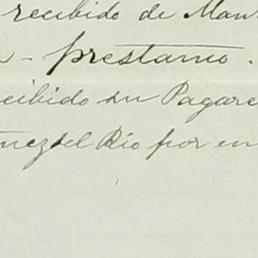 recibido de Man
- prestamo.
ecibido su Pagare
nez del Rio por en